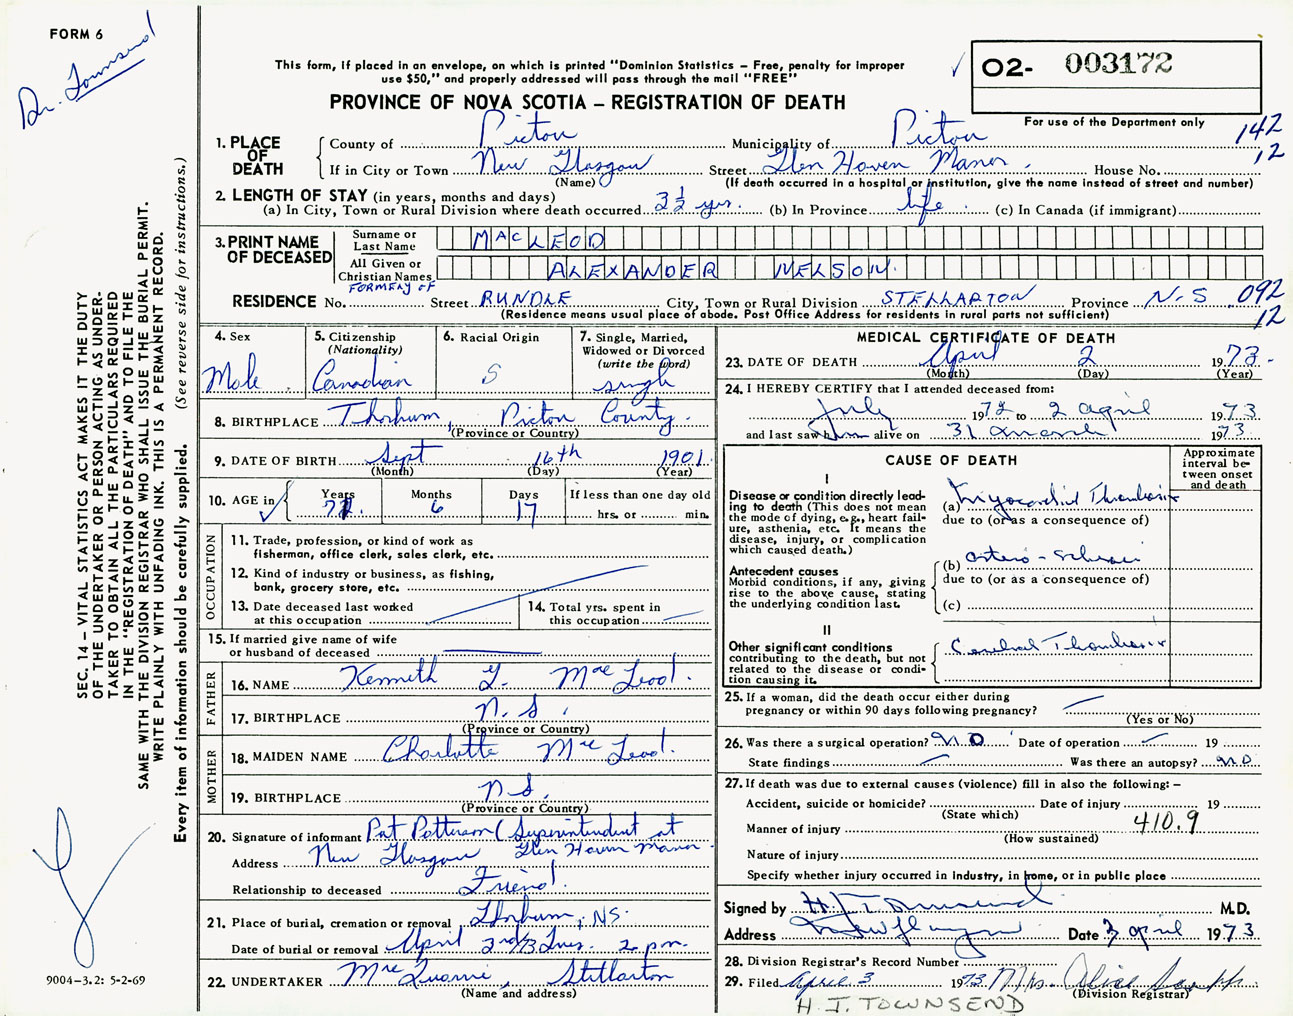 FORM 6
Dr. Townsend
This form, if placed in an envelope, on which is printed "Dominion Statistics – Free, penalty for improper
use $50," and properly addressed will pass through the mail "FREE"
PROVINCE OF NOVA SCOTIA – REGISTRATION OF DEATH
O2- 003172
For use of the Department only
142
12
1. PLACE OF DEATH
County of Pictou Municipality of Pictou
If in City or Town New Glasgow Street Glen Haven Manor. House No.
(Name) (If death occurred in a hospital or institution, give the name instead of street and number)
2. LENGTH OF STAY (in years, months and days)
(a) In City, Town or Rural Division where death occurred 3 1/2 yrs. (b) In Province life (c) In Canada (if immigrant)
3. PRINT NAME OF DECEASED
Surname or Last Name MACLEOD
All Given or Christian Names ALEXANDER NELSON
FORMERLY OF
RESIDENCE No. Street RUNDLE City, Town or Rural Division STELLARTON Province N.S 092
(Residence means usual place of abode. Post Office Address for residents in rural parts not sufficient) 12
4. Sex Male
5. Citizenship (Nationality) Canadian
6. Racial Origin S
7. Single, Married, Widowed or Divorced (write the word) single
8. BIRTHPLACE Thorburn, Pictou County.
(Province or Country)
9. DATE OF BIRTH Sept 16th 1901
(Month) (Day) (Year)
10. AGE in Years 71 Months 6 Days 17 If less than one day old hrs. or min.
OCCUPATION
11. Trade, profession, or kind of work as fisherman, office clerk, sales clerk, etc.
12. Kind of industry or business, as fishing, bank, grocery store, etc.
13. Date deceased last worked at this occupation
14. Total yrs. spent in this occupation
15. If married give name of wife or husband of deceased
FATHER
16. NAME Kenneth G. MacLeod.
17. BIRTHPLACE N.S.
(Province or Country)
MOTHER
18. MAIDEN NAME Charlotte MacLeod.
19. BIRTHPLACE N.S.
(Province or Country)
20. Signature of informant Pat Patterson (Superintendent at
Address New Glasgow Glen Haven Manor
Relationship to deceased Friend.
21. Place of burial, cremation or removal Thorburn, NS.
Date of burial or removal April 3rd/73 Tues. 2 pm.
22. UNDERTAKER Stellarton
(Name and address)
MEDICAL CERTIFICATE OF DEATH
23. DATE OF DEATH April 2 1973.
(Month) (Day) (Year)
24. I HEREBY CERTIFY that I attended deceased from:
July 1972 to 2 april 1973
and last saw him alive on 31 March 1973
CAUSE OF DEATH
Approximate interval between onset and death
I
Disease or condition directly leading to death (This does not mean the mode of dying, e.g., heart failure, asthenia, etc. It means the disease, injury, or complication which caused death.)
(a) Myocardial Thrombosis
due to (or as a consequence of)
Antecedent causes
Morbid conditions, if any, giving rise to the above cause, stating the underlying condition last.
(b)
due to (or as a consequence of)
(c)
II
Other significant conditions contributing to the death, but not related to the disease or condition causing it.
Cerebral Thrombosis
25. If a woman, did the death occur either during pregnancy or within 90 days following pregnancy?
(Yes or No)
26. Was there a surgical operation? NO Date of operation 19
State findings Was there an autopsy? NO
27. If death was due to external causes (violence) fill in also the following: –
Accident, suicide or homicide? Date of injury 19
(State which)
Manner of injury 410.9
(How sustained)
Nature of injury
Specify whether injury occurred in industry, in home, or in public place
Signed by H. J. Townsend M.D.
Address New Glasgow Date 3 april 1973
28. Division Registrar's Record Number
29. Filed April 3 1973 Mrs. Alice
(Division Registrar)
H. J. TOWNSEND
SEC. 14 – VITAL STATISTICS ACT MAKES IT THE DUTY
OF THE UNDERTAKER OR PERSON ACTING AS UNDER-
TAKER TO OBTAIN ALL THE PARTICULARS REQUIRED
IN THE "REGISTRATION OF DEATH" AND TO FILE THE
SAME WITH THE DIVISION REGISTRAR WHO SHALL ISSUE THE BURIAL PERMIT.
WRITE PLAINLY WITH UNFADING INK. THIS IS A PERMANENT RECORD.
Every item of information should be carefully supplied. (See reverse side for instructions.)
9004–3.2: 5-2-69